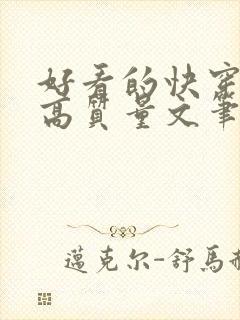 好看的快穿
高質量文筆
邁克尔-舒馬赫